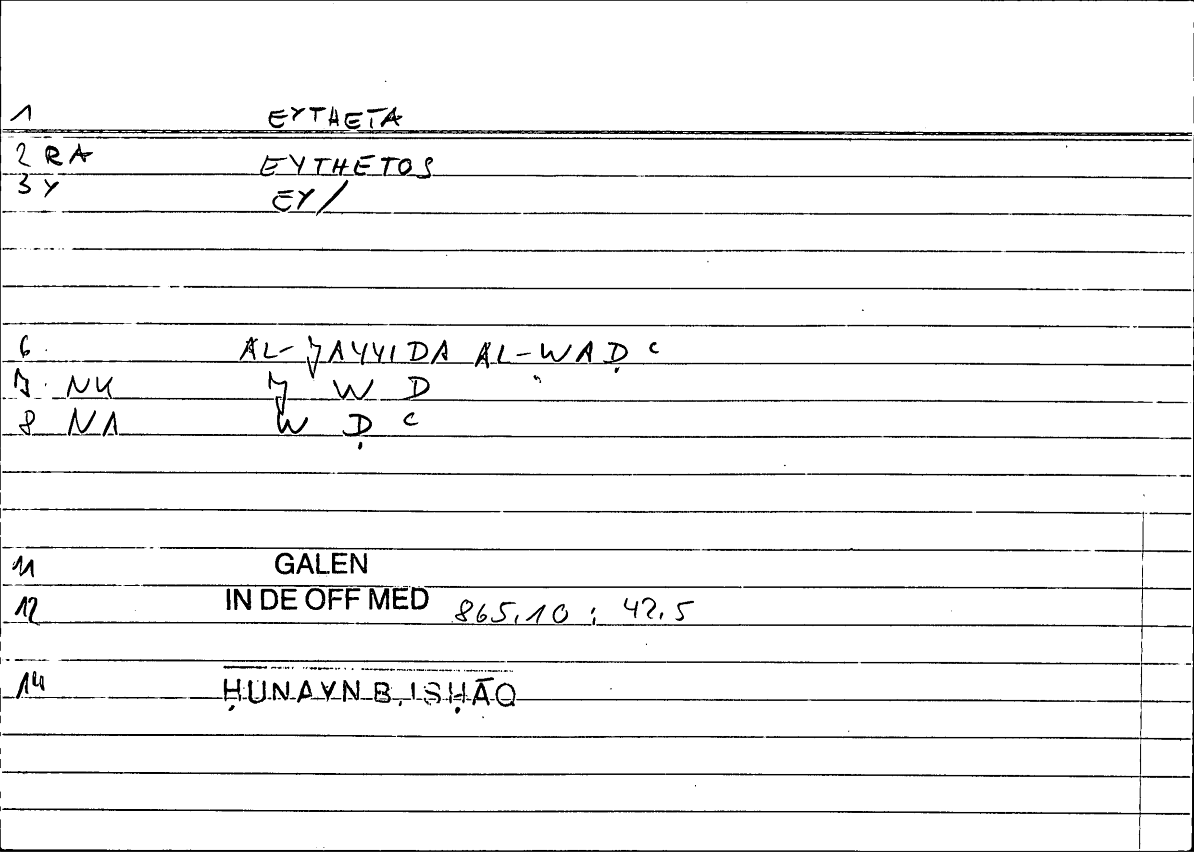 1 EYTHETA
2 RA EYTHETOS
3 Y EY/
6. AL-JAYYIDA AL-WAḌ ʿ
7. NK J W D
8 NA W Ḍ ʿ
11 GALEN
12 IN DE OFF MED 865,10 ; 42,5
14 ḤUNAYN B. ISḤĀQ